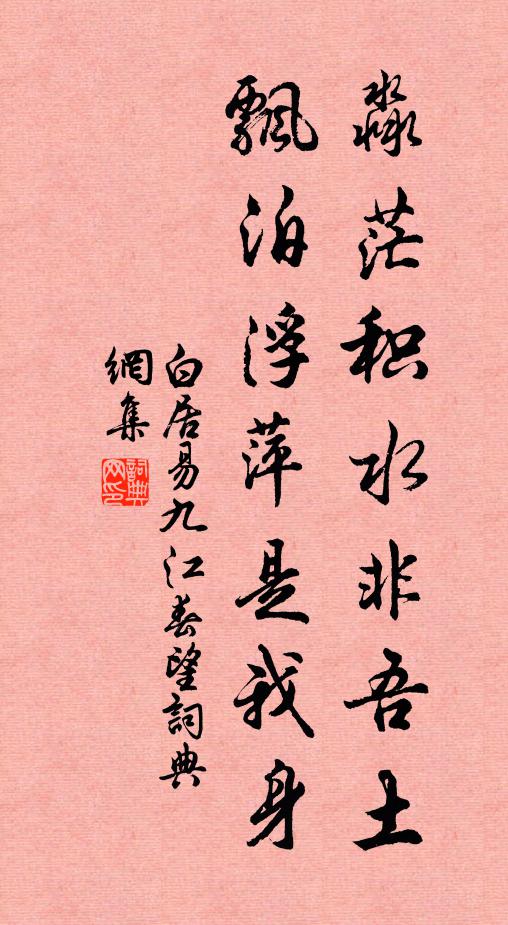 淼茫积水非吾土
飄泊浮萍是我身
白居易九江春望詞典
網集
詞典网印